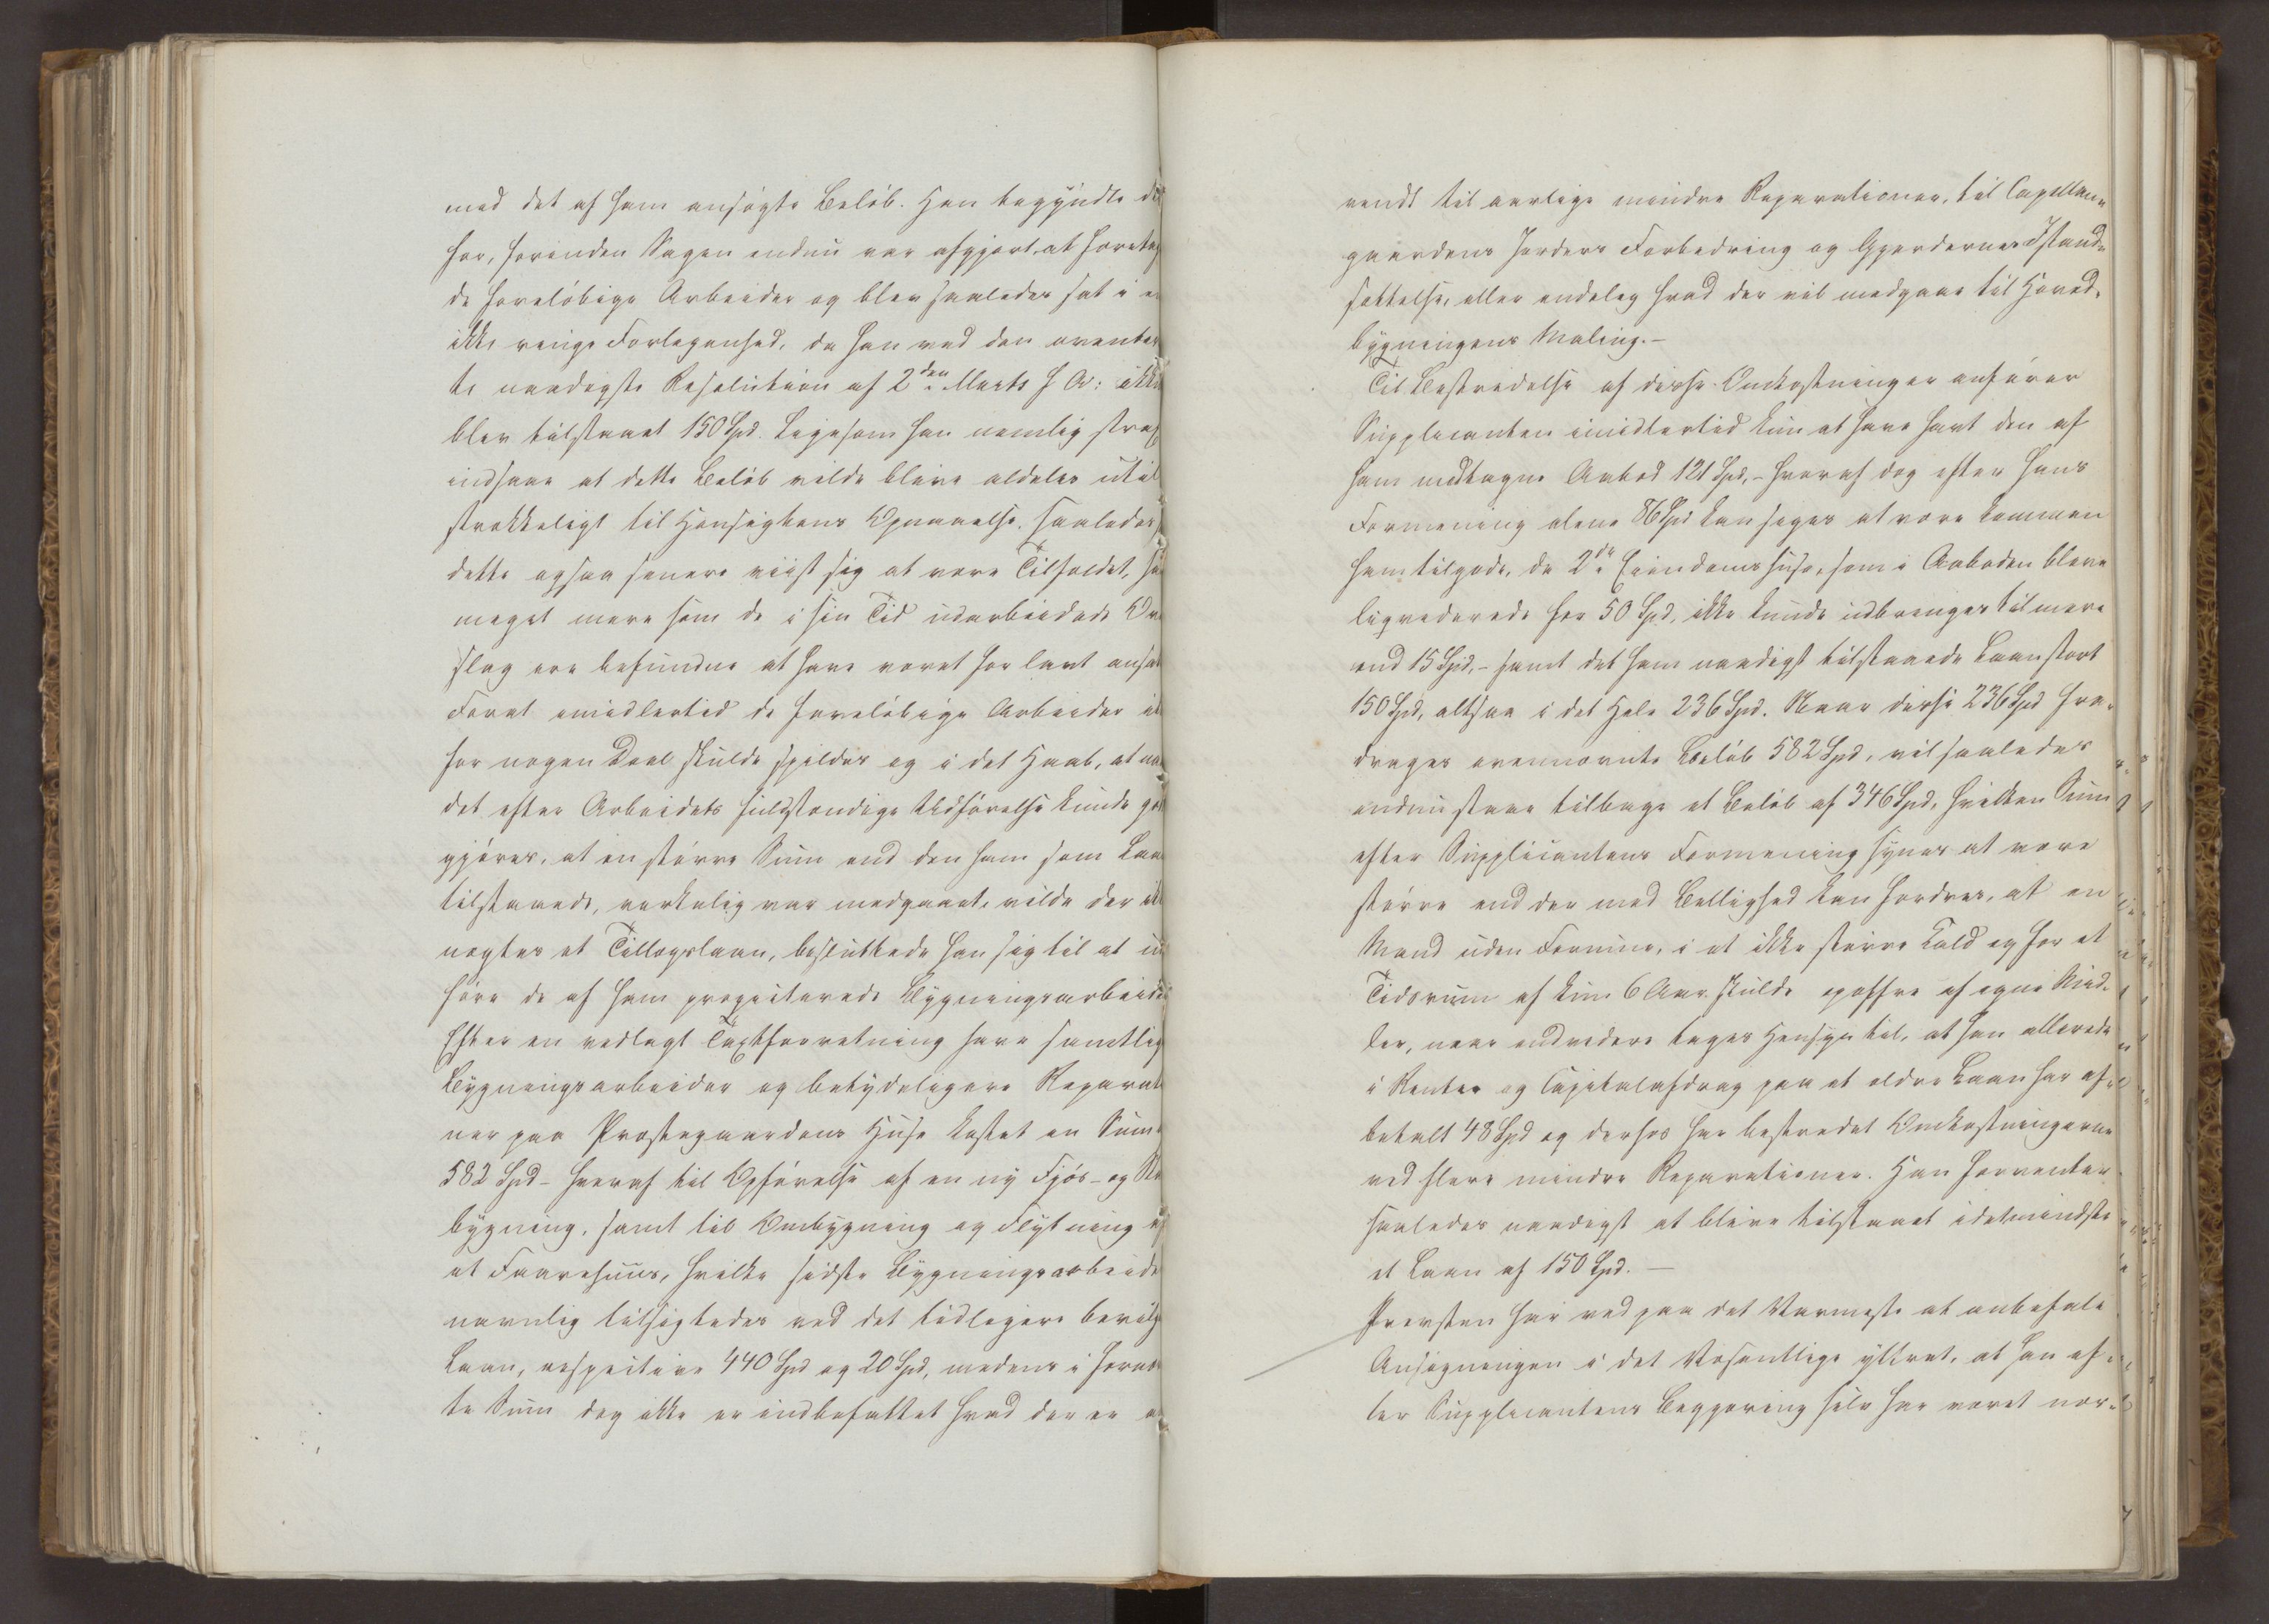 med det af ham ansøgte Beløb. Han begyndte der
for, forinden Sagen endnu var afgjort at foretag
de foreløbige Arbeider og blev saaledes sat i en
ikke ringe Forlegenhed, da han ved den ovenber
te naadigste Resolution af 2den Marts f A: ikke
blev tilstaaet 150 Spd. Ligesom han nemlig strax
indsaae at dette Beløb vilde blive aldeles util
strækkeligt til Hensigtens Opnaaelse, saaledes
dette ogsaa senere viist sig at være Tilfældet, saa
meget mere som de i sin Tid udarbeidede Over
slag ere befundne at have været for lavt ansat
Forat imidlertid de foreløbige Arbeider ikke
for nogen Deel skulde spildes og i det Haab, at naar
det efter Arbeidets fuldstændige Udførelse kunde god
gjøres, at en større Sum end den ham som Laan
tilstaaede, virkelig var medgaaet, vilde der ikke
negtes et Tillægslaan, besluttede han sig til at ud
føre de af ham projecterede Bygningsarbeider
Efter en vedlagt Taxtforretning have samtlige
Bygningsarbeider og betydeligere Reparatio
ner paa Præstegaardens Huse kostet en Sum
582 Spd – hvoraf til Opførelse af en ny Fjøs- og
bygning, samt til Ombygning og Flytning af
et Faarehuus, hvilke sidste Bygningsarbeider
navnlig tilsigtedes ved det tidligere bevilge
Laan, respective 440 Spd og 20 Spd, medens i fornævn
te Sum dog ikke er indbefattet hvad der er an
vendt til aarlige mindre Reparationer, til Capellan-
gaardens Jorders Forbedring og Gjerdernes Istand-
sættelse, eller endelig hvad der vil medgaae til Hoved-
bygningens Maling. –
Til Bestridelse af disse Omkostninger anfører
Supplicanten imidlertid kun at have havt den af
ham modtagne Aabod 121 Spd, – hvoraf dog efter hans
Formening alene 86 Spd kan siges at være kommen
ham tilgode, da 2de Eiendomshuse, som i Aaboden bleve
liqviderede for 50 Spd, ikke kunde udbringes til mere
end 15 Spd, – samt det ham naadigst tilstaaede Laan stort
150 Spd, altsaa i det Hele 236 Spd. Naar disse 236 Spd fra-
drages ovennævnte Beløb 582 Spd, vil saaledes
endnu staae tilbage et Beløb af 346 Spd, hvilken Sum
efter Supplicantens Formening synes at være
større end der med Billighed kan fordres, at en
Mand uden Formue, i et ikke større Kald og for et
Tidsrum af kun 6 Aar skulde opoffre af egne Mid-
ler, naar endvidere tages Hensyn til, at han allerede
i Renter og Capitalafdrag paa et ældre Laan har af-
betalt 48 Spd og derhos har bestridet Omkostningerne
ved flere mindre Reparationer. Han forventer
saaledes naadigst at blive tilstaaet idetmindste
et Laan af 150 Spd. –
Provsten har ved paa det Varmeste at anbefale
Ansøgningen i det Væsentlige yttret, at han ef-
ter Supplicantens Begjæring selv har været nær-